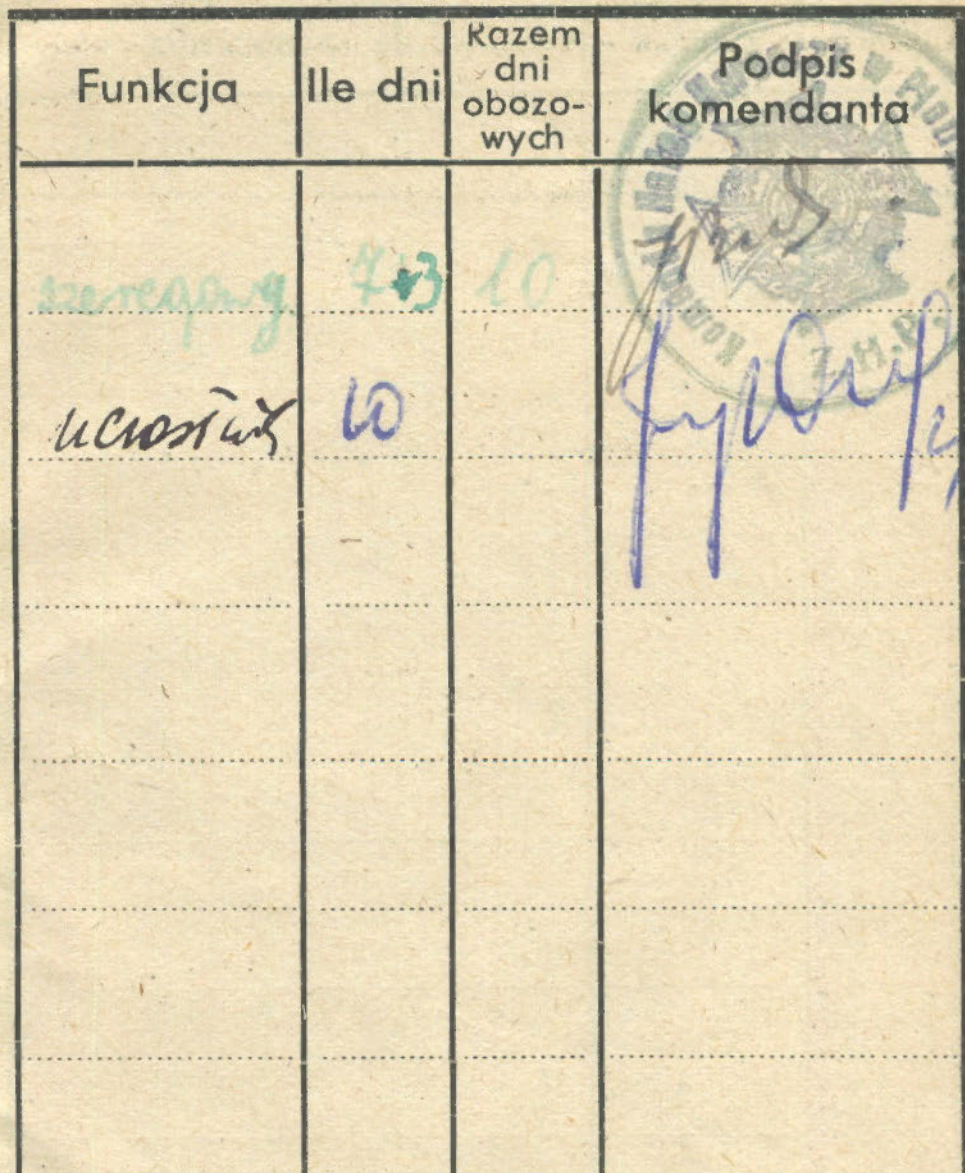 Funkcja Ile dni Razem dni obozo-wych Podpis komendanta
szeregowy 7+3 10
uczestnik 10
Z.H.P.